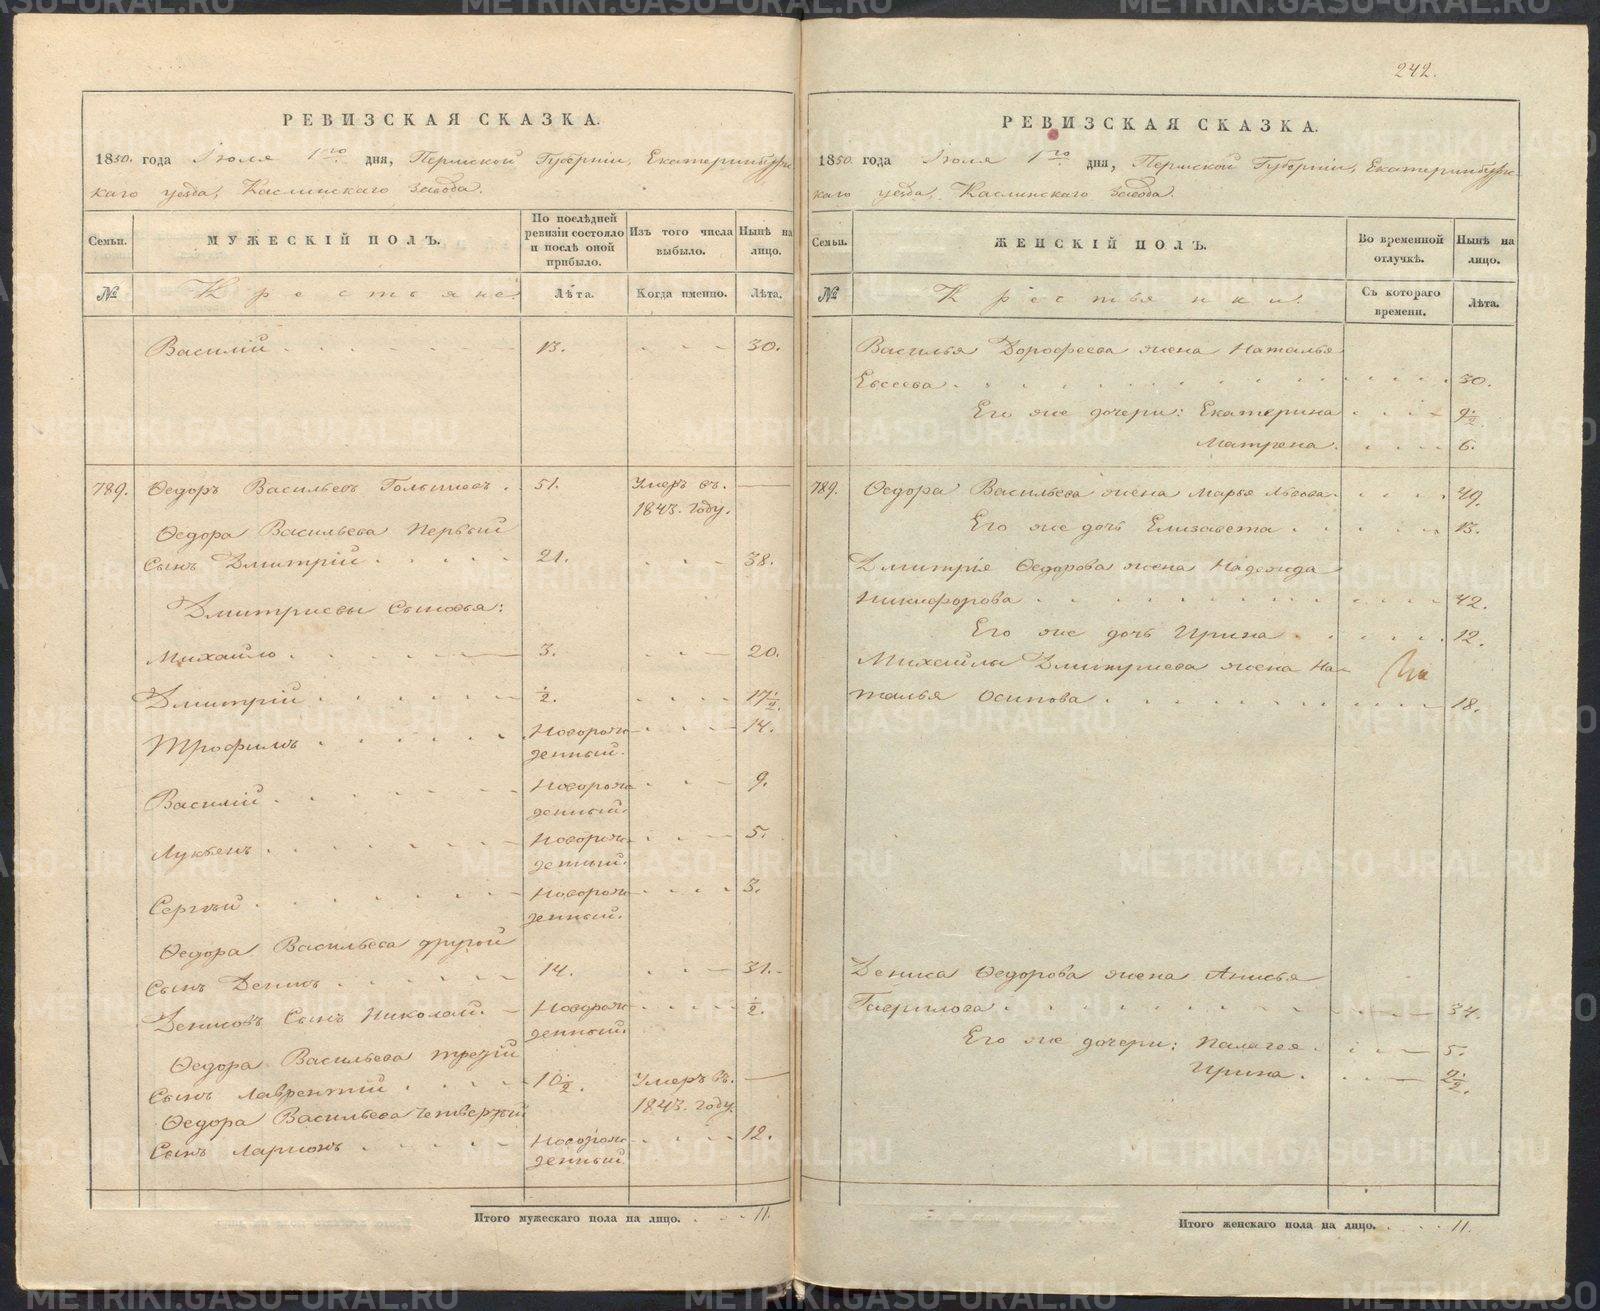 242.
РЕВИЗСКАЯ СКАЗКА.
1850. года Іюля 1го дня, Пермской Губерніи, Екатеринбургс-
каго уезда, Каслинскаго завода.
Семьи.
МУЖЕСКІЙ ПОЛЪ.
По послѣдней ревизіи состояло и послѣ оной прибыло.
Изъ того числа выбыло.
Нынѣ на лицо.
№
Крестьяне
Лѣта.
Когда именно.
Лѣта.
Василій 13. 30.
789. Ѳедоръ Васильевъ Голышевъ. 51. Умеръ въ
1843. году.
Ѳедора Васильева Первый
Сынъ Дмитрій 21. 38.
Дмитріевы Сыновья:
Михайло 3. 20.
Дмитрій ½. 17½.
Трофимъ Новорож- 14.
денный.
Василій Новорож- 9.
денный.
Лукьянъ Новорож- 5.
денный.
Сергѣй Новорож- 3.
денный.
Ѳедора Васильева другой
Сынъ Денисъ 14. 31.
Денисовъ Сынъ Николай. Новорож- ½.
денный.
Ѳедора Васильева третій
Сынъ Лаврентій 10½. Умеръ въ
1843. году.
Ѳедора Васильева четвертый
Сынъ Ларионъ Новорож- 12.
денный.
Итого мужескаго пола на лицо. 11.
РЕВИЗСКАЯ СКАЗКА.
1850. года Іюля 1го дня, Пермской Губерніи, Екатеринбургс-
каго уезда, Каслинскаго завода.
Семьи.
ЖЕНСКІЙ ПОЛЪ.
Во временной отлучкѣ.
Нынѣ на лицо.
№
Крестьянки.
Съ котораго времени.
Лѣта.
Василья Дорофеева жена Наталья
Евсеева. 30.
Его же дочери: Екатерина 9½.
Матрена. 6.
789. Ѳедора Васильева жена Марья Львова. 49.
Его же дочь Елизавета 13.
Дмитрія Ѳедорова жена Надежда
Никифорова 42.
Его же дочь Ирина 12.
Михайлы Дмитриева жена На-
талья Осипова 18.
Дениса Ѳедорова жена Анисья
Гаврилова 34.
Его же дочери: Палагея. 5.
Ирина. 2½.
Итого женскаго пола на лицо. 11.
METRIKI.GASO-URAL.RU